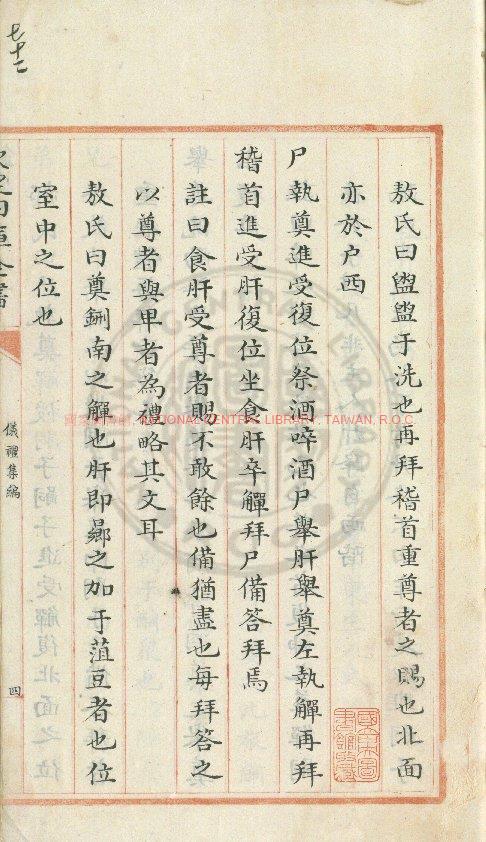 七十二
敖氏曰盥盥于洗也再拜稽首重尊者之賜也北面
亦於户西
尸執奠進受復位祭酒啐酒尸舉肝舉奠左執觶再拜
稽首進受肝復位坐食肝卒觶拜尸備答拜焉
註曰食肝受尊者賜不敢餘也備猶盡也每拜答之
以尊者與卑者為禮略其文耳
敖氏曰奠鉶南之觶也肝即曏之加于菹豆者也位
室中之位也
欽定四庫全書
儀禮集編
四
NATIONAL CENTRAL LIBRARY, TAIWAN, R.O.C